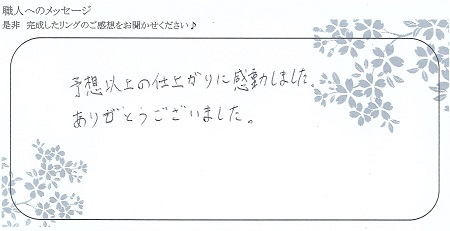 職人へのメッセージ
是非 完成したリングのご感想をお聞かせください♪
予想以上の仕上がりに感動しました。
ありがとうございました。